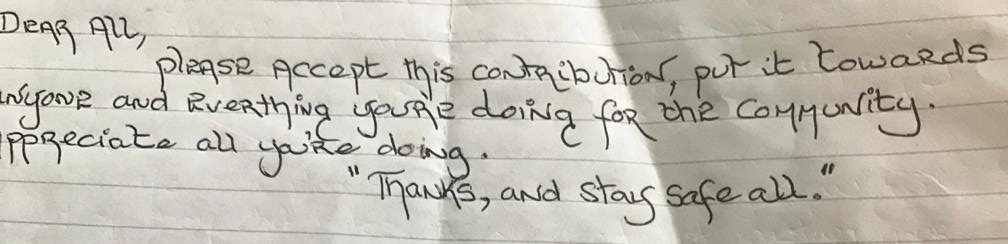 Dear All,
please Accept this contribution, put it towards
nyone and Everthing you're doing for the community.
ppreciate all ya're doing.
"Thanks, and stay safe all."